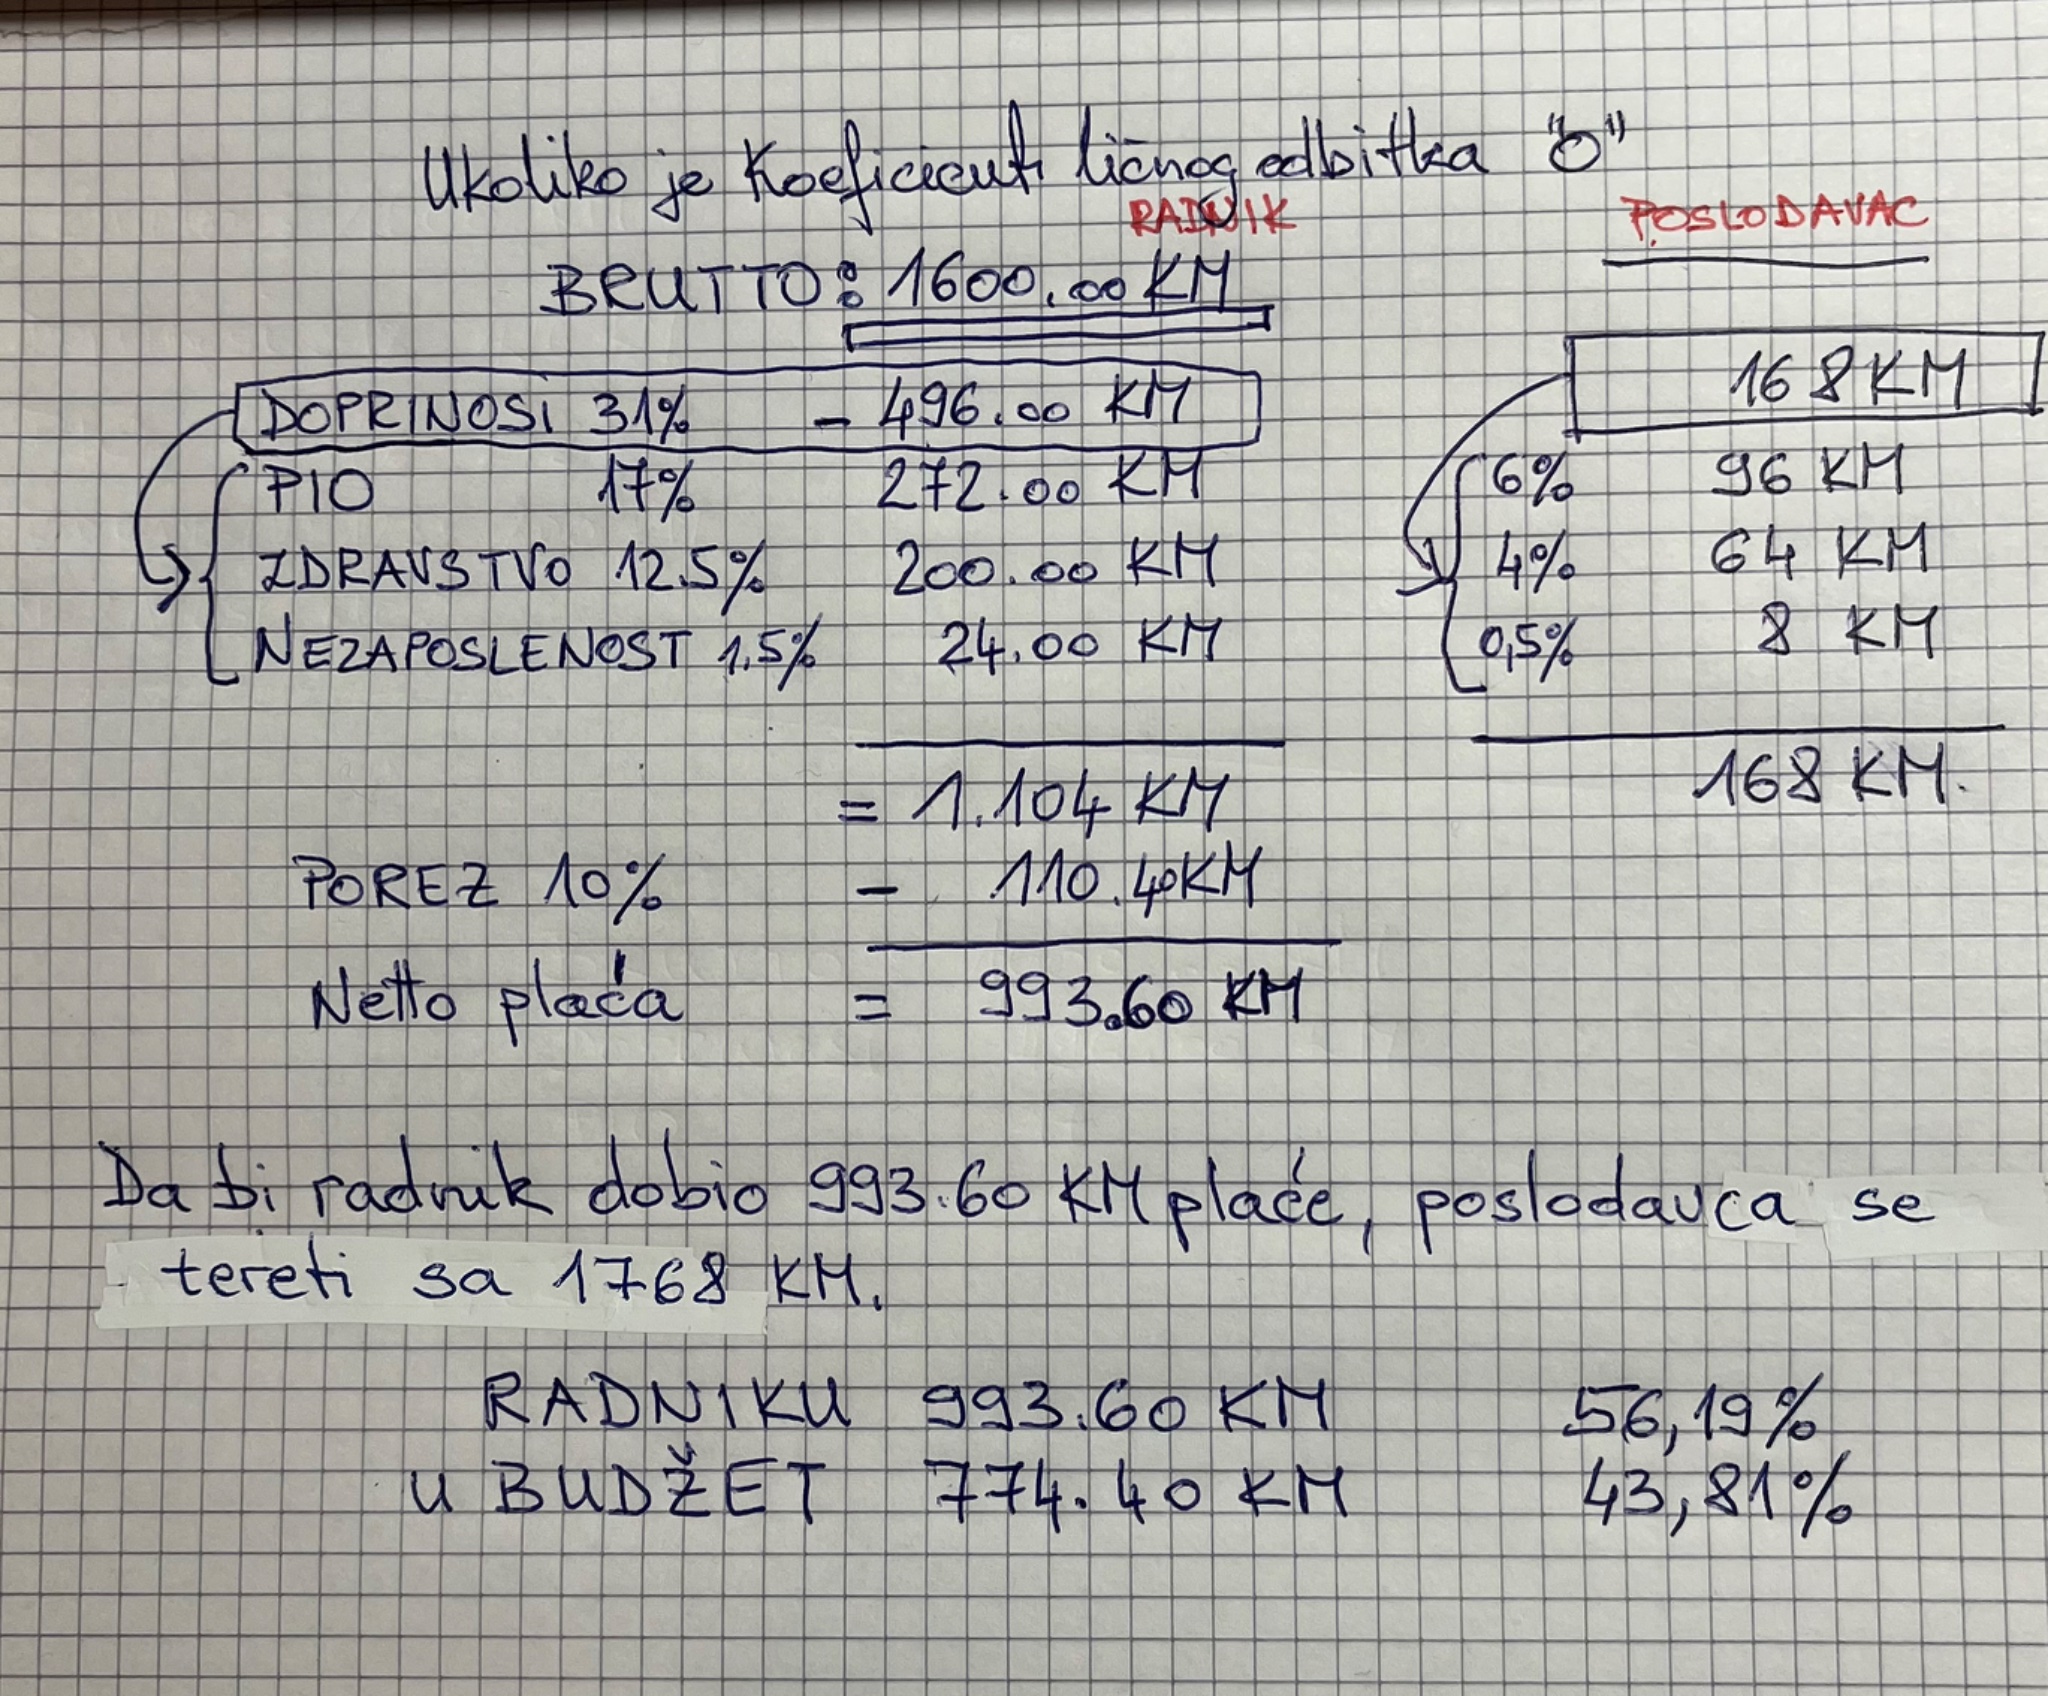 Ukoliko je Koeficient ličnog odbitka "0"
RADNIK POSLODAVAC
BRUTTO: 1600.00 KM
DOPRINOSI 31% - 496.00 KM 168 KM
PIO 17% 272.00 KM 6% 96 KM
ZDRAVSTVO 12.5% 200.00 KM 4% 64 KM
NEZAPOSLENOST 1.5% 24.00 KM 0,5% 8 KM
= 1.104 KM 168 KM.
POREZ 10% - 110.40KM
Netto plaća = 993.60 KM
Da bi radnik dobio 993.60 KM plaće, poslodavca se
tereti sa 1768 KM.
RADNIKU 993.60 KM 56,19%
U BUDŽET 774.40 KM 43,81%